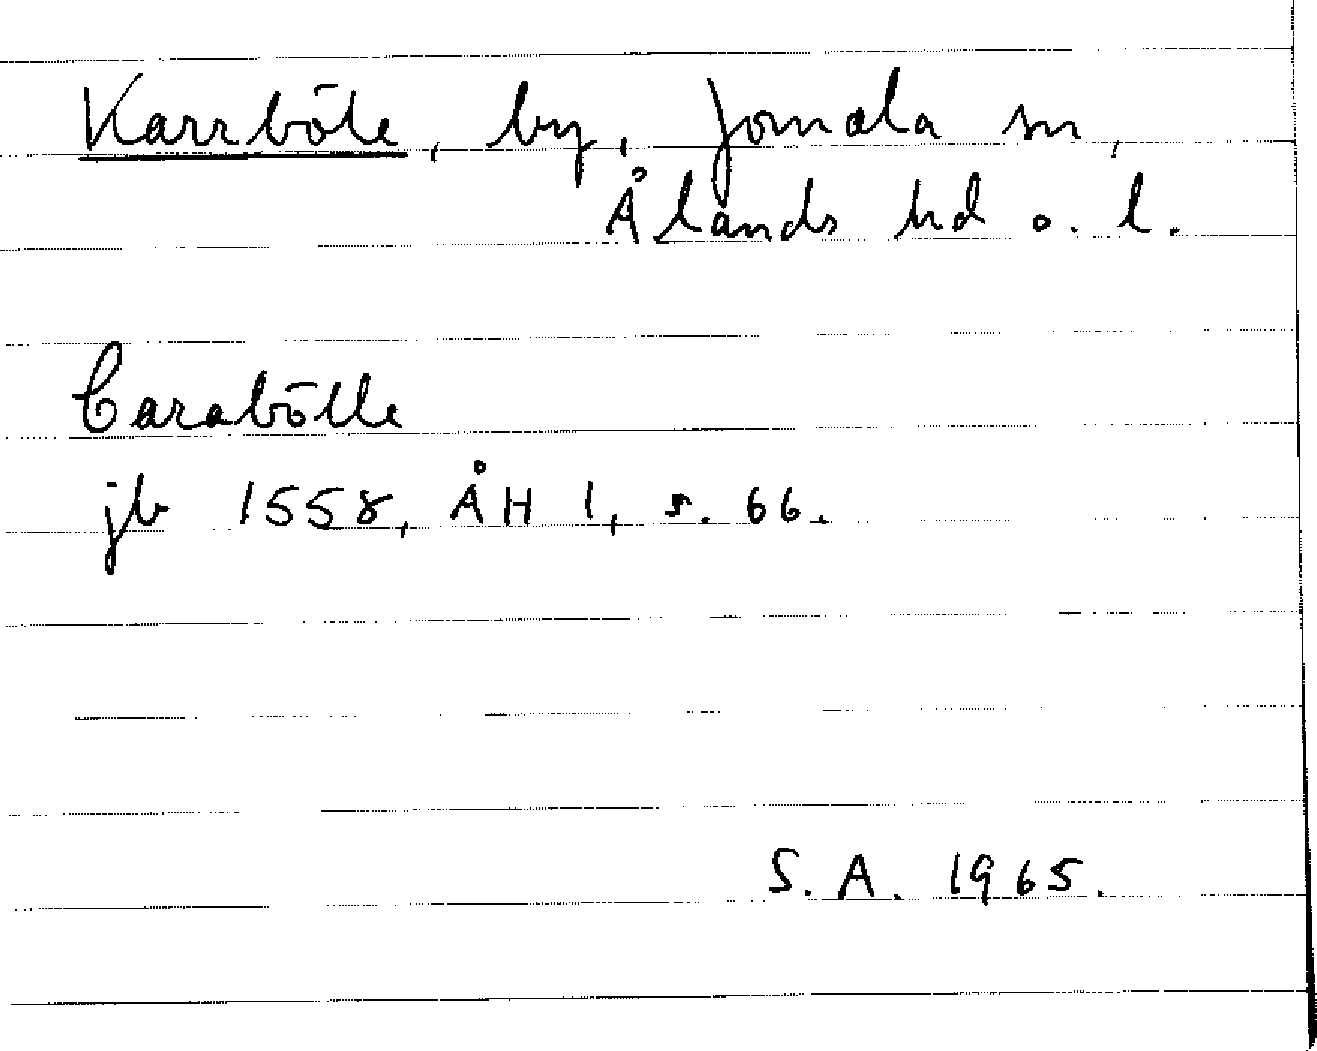 Karrböle, by, Jomala sn,
Ålands hd o. l.
Carabölle
jb 1558, ÅH 1, s. 66.
S. A. 1965.